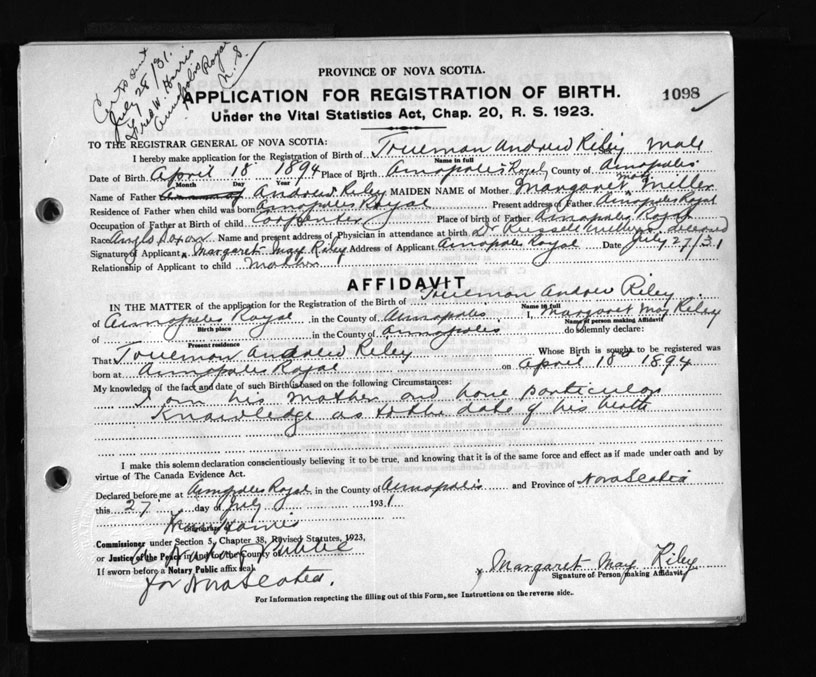 Cert sent
July 28/31.
Fred W. Harris
Annapolis Royal
N. S.
PROVINCE OF NOVA SCOTIA.
APPLICATION FOR REGISTRATION OF BIRTH. 1098
Under the Vital Statistics Act, Chap. 20, R. S. 1923.
TO THE REGISTRAR GENERAL OF NOVA SCOTIA:
I hereby make application for the Registration of Birth of Trueman Andrew Riley Male
Name in full
Date of Birth April 18 1894 Place of Birth Annapolis Royal County of Annapolis
Month Day Year
Name of Father Andrew Riley MAIDEN NAME of Mother Margaret May Miller
Residence of Father when child was born Annapolis Royal Present address of Father Annapolis Royal
Occupation of Father at Birth of child Carpenter Place of birth of Father Annapolis Royal
Race Anglo Saxon Name and present address of Physician in attendance at birth Dr Russell deceased
Signature of Applicant x Margaret May Riley Address of Applicant Annapolis Royal Date July 27/31
Relationship of Applicant to child mother
AFFIDAVIT
IN THE MATTER of the application for the Registration of the Birth of Trueman Andrew Riley
Name in full
of Annapolis Royal in the County of Annapolis I, Margaret May Riley
Birth place Name of person making Affidavit
of in the County of Annapolis do solemnly declare:
Present residence
That Trueman Andrew Riley Whose Birth is sought to be registered was
born at Annapolis Royal on April 18 1894
My knowledge of the fact and date of such Birth is based on the following Circumstances:
I am his mother and have particular
knowledge as to the date of his birth
I make this solemn declaration conscientiously believing it to be true, and knowing that it is of the same force and effect as if made under oath and by
virtue of The Canada Evidence Act.
Declared before me at Annapolis Royal in the County of Annapolis and Province of Nova Scotia
this 27 day of July 1931
Harris
Commissioner under Section 5, Chapter 38, Revised Statutes, 1923,
or Justice of the Peace in and for the County of
A Notary Public
If sworn before a Notary Public affix seal.
for Nova Scotia.
x Margaret May Riley
Signature of Person making Affidavit
For Information respecting the filling out of this Form, see Instructions on the reverse side.